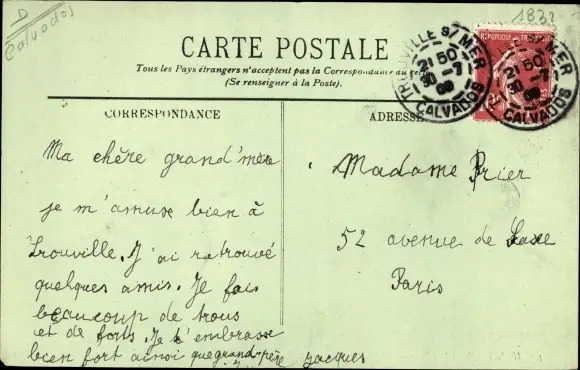 D
Calvados
1832
CARTE POSTALE
Tous les Pays étrangers n'acceptent pas la Correspondance au
(Se renseigner à la Poste).
TROUVILLE S/ MER
21 50
30 -7
08
CALVADOS
S/ MER
21 50
30 -7
08
CALVADOS
REPUBLIQUE FRANÇAISE
CORRESPONDANCE
ADRESSE
Ma chère grand'mère
je m'amuse bien à
Trouville. J'ai retrouvé
quelques amis. Je fais
beaucoup de trous
et de forts. Je t'embrasse
bien fort ainsi que grand-père Jacques
Madame Prier
52 avenue de Saxe
Paris